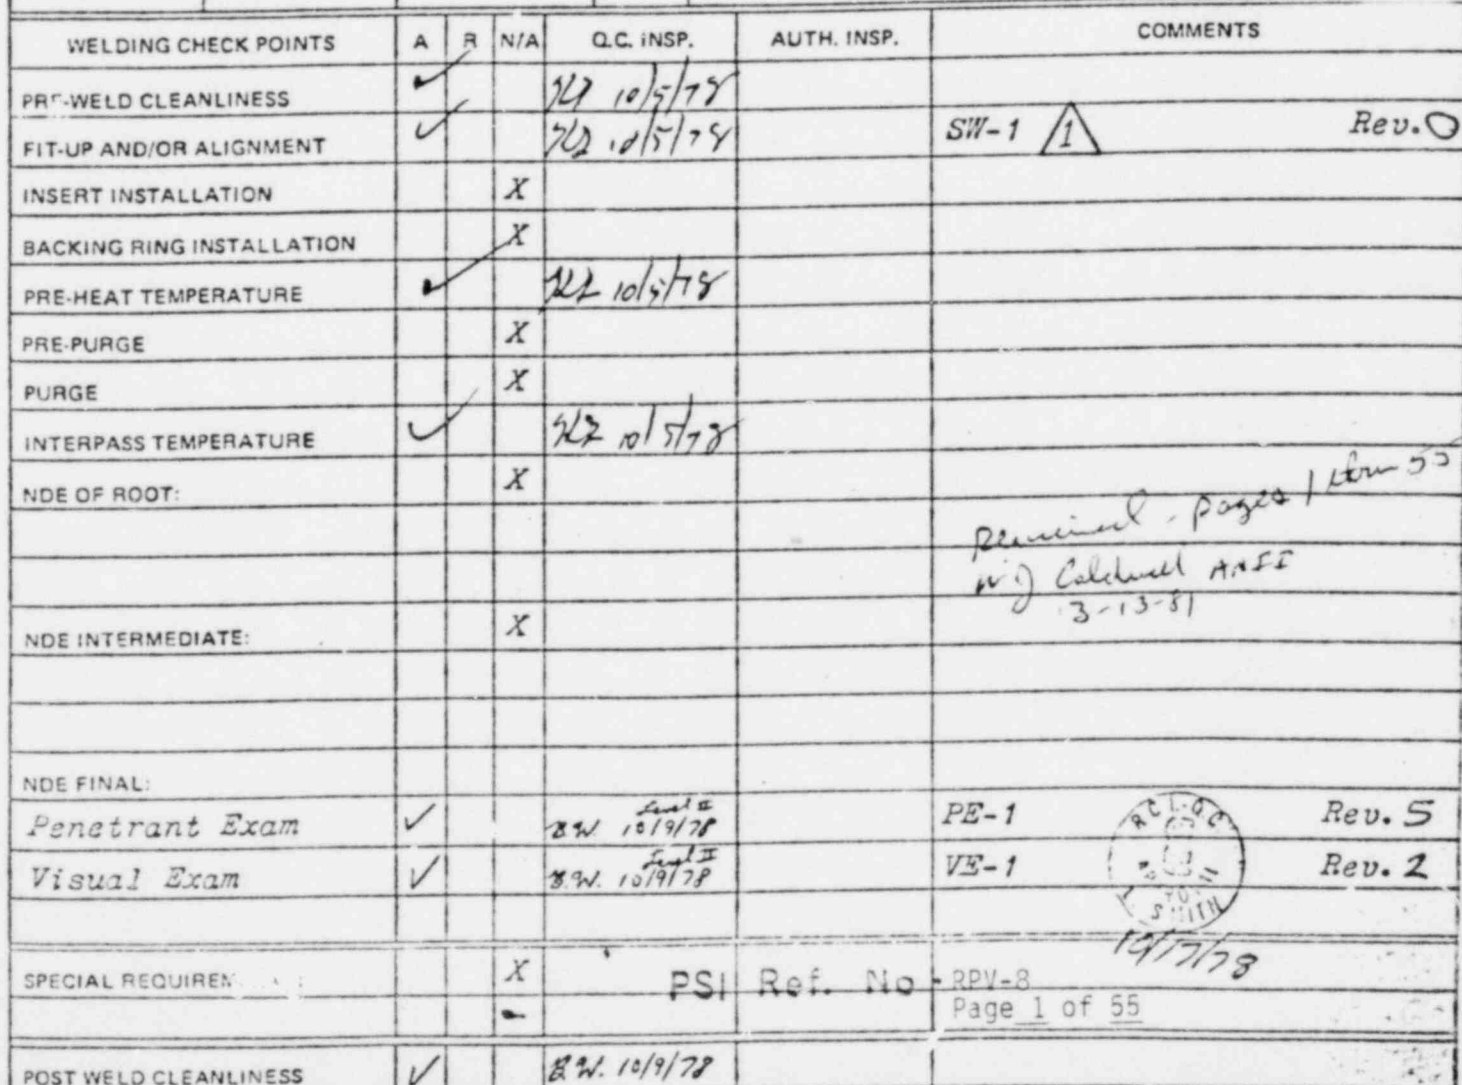 WELDING CHECK POINTS A R N/A Q.C. INSP. AUTH. INSP. COMMENTS
PRE-WELD CLEANLINESS ✓ 10/5/78
FIT-UP AND/OR ALIGNMENT ✓ 10/5/78 SW-1 1 Rev. 0
INSERT INSTALLATION X
BACKING RING INSTALLATION X
PRE-HEAT TEMPERATURE ✓ 10/5/78
PRE-PURGE X
PURGE X
INTERPASS TEMPERATURE ✓ 10/5/78
NDE OF ROOT: X
pages 1
W J Caldwell ANII
3-13-81
NDE INTERMEDIATE: X
NDE FINAL:
Level II
Penetrant Exam ✓ B.W. 10/9/78 PE-1 Rev. 5
Level II
Visual Exam ✓ B.W. 10/9/78 VE-1 Rev. 2
RCI-QC
SMITH
10/17/78
SPECIAL X
PSI Ref. No - RPV-8
Page 1 of 55
POST WELD CLEANLINESS ✓ B.W. 10/9/78